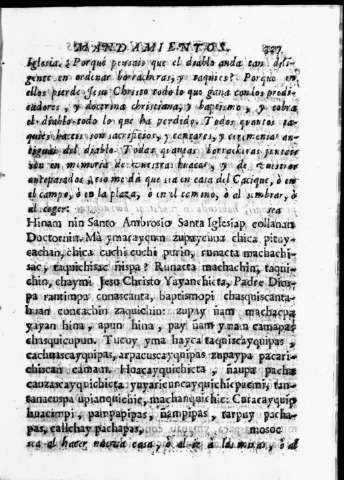 MANDAMIENTOS. 327
Iglesia. ¿Porquè pensais que el diablo anda tan dili-
gente en ordenar borracheras, y taquies? Porque en
ellos pierde Jesu Christo todo lo que gana con los predi-
cadores, y doctrina christiana, y baptismo, y cobra
el diablo todo lo que ha perdido. Todos quantos ta-
quies haceis son sacrificios, y cantares, y ceremonias an-
tiguas del diablo. Todas quantas borracheras
son en memoria de vuestras huacas, y de vuestros
antepasados, eso me dá que sea en casa del Cacique, ò en
el campo, ò en la plaza, ò en el camino, ò al sembrar, ò
al coger: sea
Hinam nin Santo Ambrosio Santa Iglesiap collanan
Doctornin. Mà ymaraycun zupaycuna chica pituy-
cachan, chica cuchi cuchi purin, runacta machachi-
sac, taquichisac ñispa? Runacta machachin, taqui-
chin, chaymi Jesu Christo Yayanchicta, Padre Dios-
pa rantimpa cunascanta, baptismopi chasquiscanta-
huan concachin zaquichin: zupay ñam machacpa
yayan hina, apun hina, pay ñam ynan camapas
chasquicupun. Tucuy yma hayca taquiscayquipas,
cachuascayquipas, arpacuscayquipas zupaypa pacari-
chiscan camam. Huacayquichicta, ñaupa pacha
cauzascayquichicta yuyaricuncayquichicpacmi, tan-
tanacuspa upianquichic, machanquichic: Curacayquip
huacimpi, pampapipas, ñampipas, tarpuy pacha-
pas, callchay pachapas, mosoc
sea al hacer nueva casa, ò al ir à las minas, ò al